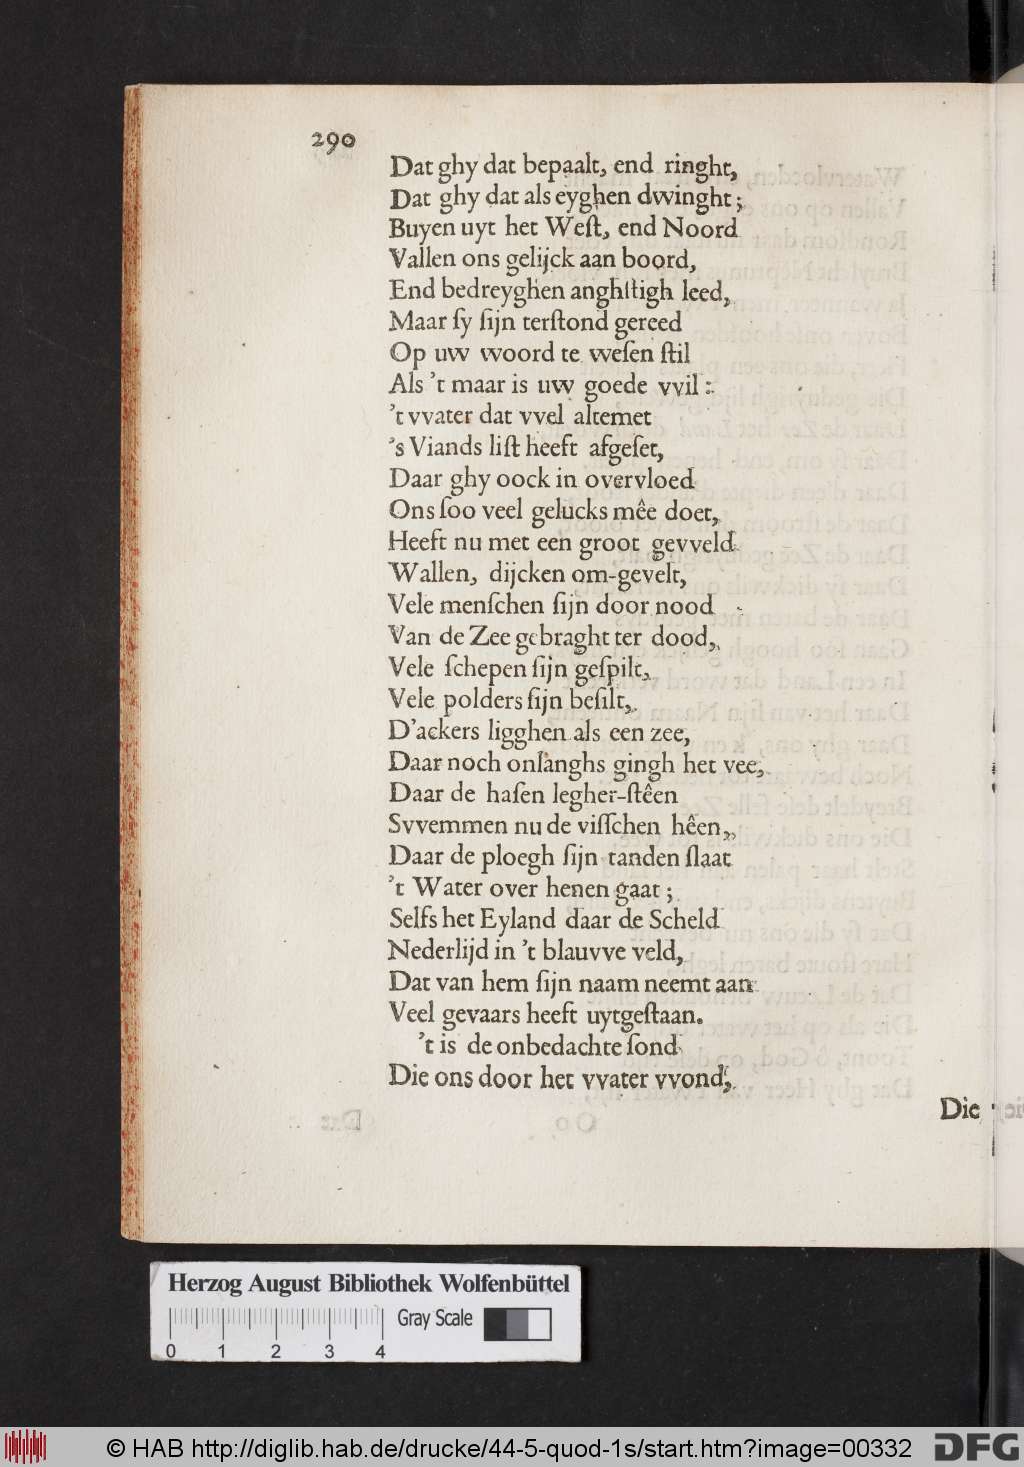 290
Dat ghy dat bepaalt, end ringht,
Dat ghy dat als eyghen dwinght;
Buyen uyt het Weſt, end Noord
Vallen ons gelijck aan boord,
End bedreyghen anghſtigh leed,
Maar ſy ſijn terſtond gereed
Op uw woord te weſen ſtil
Als 't maar is uw goede vvil:
't vvater dat vvel altemet
's Viands liſt heeft afgeſet,
Daar ghy oock in overvloed
Ons ſoo veel gelucks mêe doet,
Heeft nu met een groot gevveld
Wallen, dijcken om-gevelt,
Vele menſchen ſijn door nood
Van de Zee gebraght ter dood,
Vele ſchepen ſijn geſpilt,
Vele polders ſijn beſilt,
D'ackers ligghen als een zee,
Daar noch onlanghs gingh het vee,
Daar de haſen legher-ſtêen
Svvemmen nu de viſſchen hêen,
Daar de ploegh ſijn tanden ſlaat
't Water over henen gaat;
Selfs het Eyland daar de Scheld
Nederlijd in 't blauvve veld,
Dat van hem ſijn naam neemt aan
Veel gevaars heeft uytgeſtaan.
't is de onbedachte ſond
Die ons door het vvater vvond,
Die
Herzog August Bibliothek Wolfenbüttel
Gray Scale
0 1 2 3 4
© HAB http://diglib.hab.de/drucke/44-5-quod-1s/start.htm?image=00332
DFG